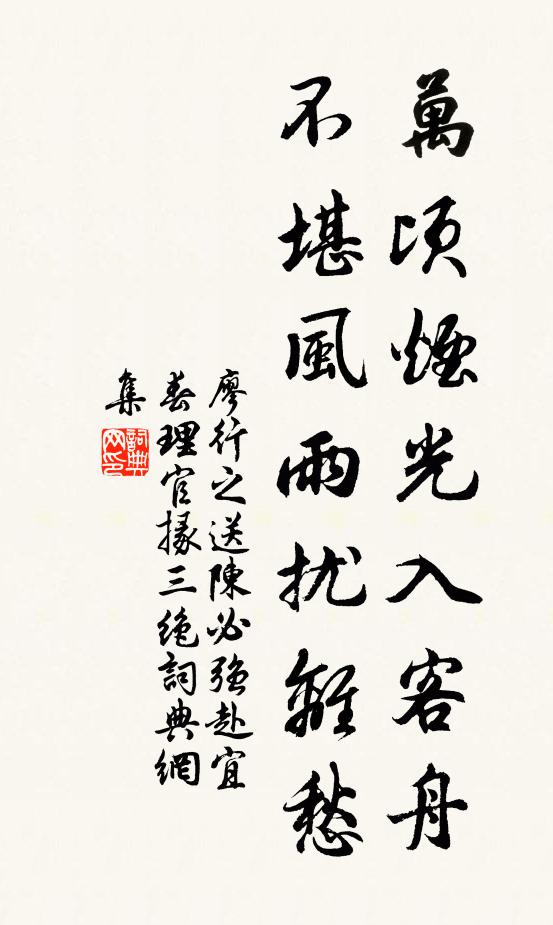 萬頃煙光入客舟
不堪風雨扰離愁
廖行之送陳必强赴宜
春理官掾三绝詞典網
集
詞典
网印